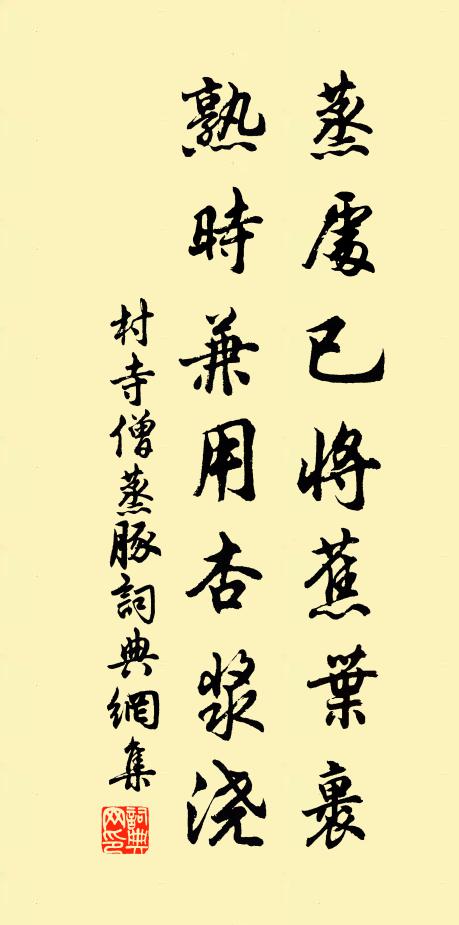 蒸處已將蕉葉裹
熟時兼用杏漿澆
村寺僧蒸豚詞典網集
詞典網印